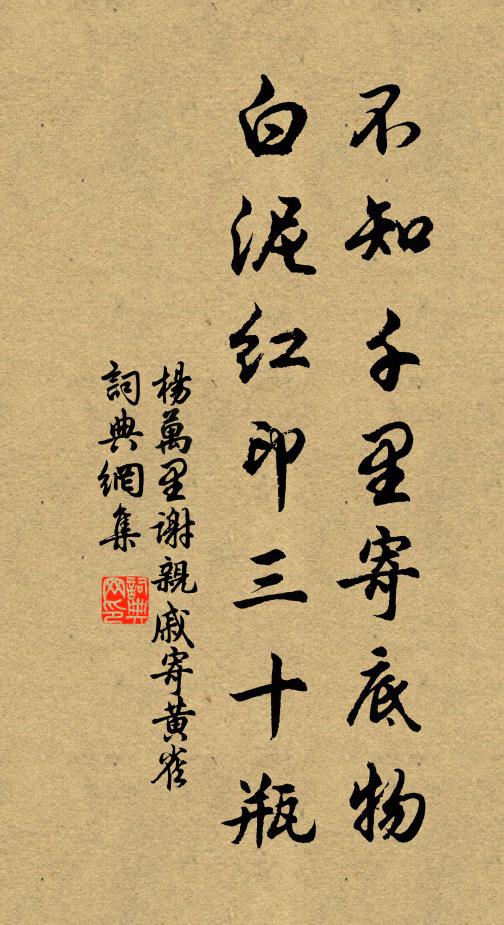 不知千里寄底物
白泥红印三十瓶
楊萬里謝親戚寄黄雀
詞典網集
詞典网印